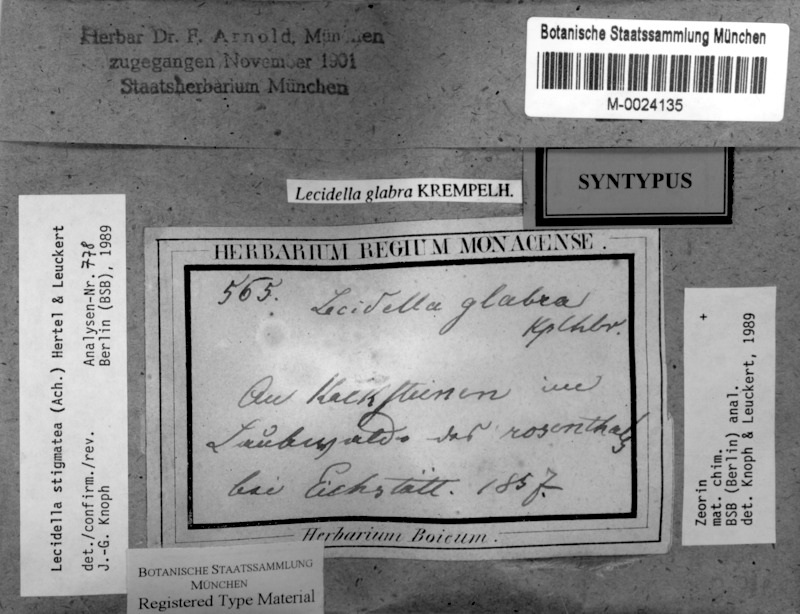 Herbar Dr. F. Arnold, München
zugegangen November 1901
Staatsherbarium München
Botanische Staatssammlung München
M-0024135
SYNTYPUS
Lecidella glabra KREMPELH.
HERBARIUM REGIUM MONACENSE.
565. Lecidella glabra
Kplhbr.
An Kalksteinen im
Laubwalde des rosenthals
bei Eichstätt. 1857.
Herbarium Boicum.
Lecidella stigmatea (Ach.) Hertel & Leuckert
det./confirm./rev. Analysen-Nr. 778
J.-G. Knoph Berlin (BSB), 1989
Zeorin +
mat. chim.
BSB (Berlin) anal.
det. Knoph & Leuckert, 1989
BOTANISCHE STAATSSAMMLUNG
MÜNCHEN
Registered Type Material